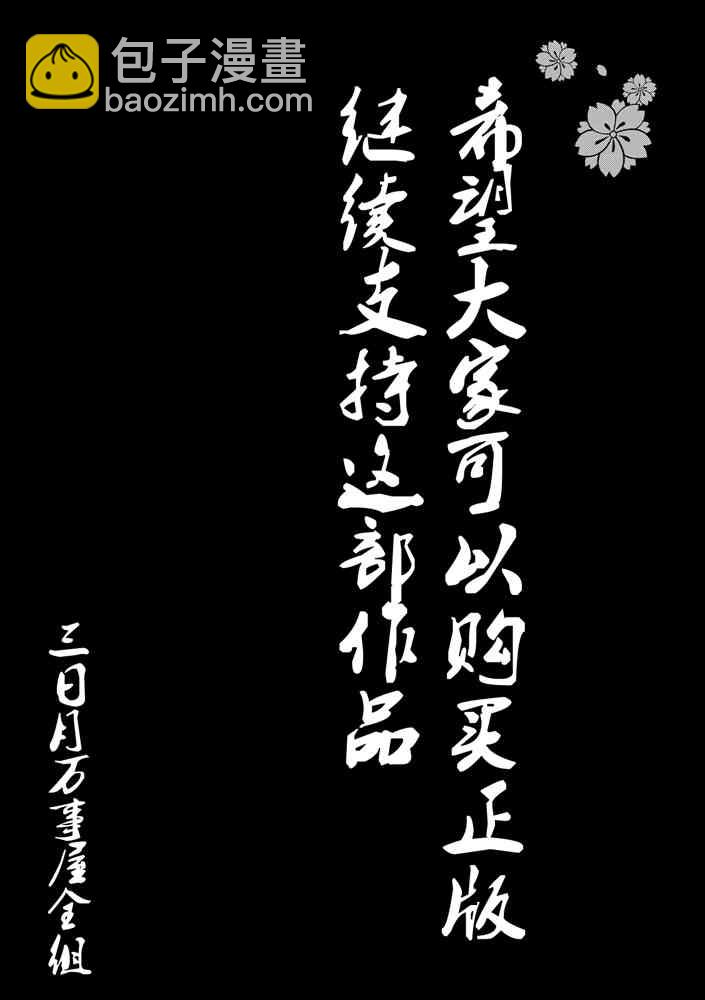 包子漫畫
baozimh.com
希望大家可以购买正版
继续支持这部作品
三日月万事屋全组